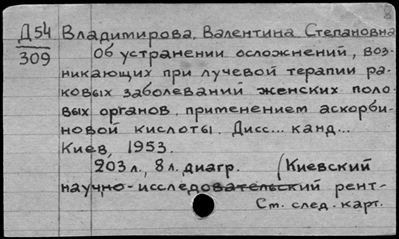 Д54 Владимирова, Валентина Степановна
309 Об устранении осложнений, воз-
никающих при лучевой терапии ра-
ковых заболеваний женских поло-
вых органов применением аскорби-
новой кислоты. Дисс... канд...
Киев, 1953.
203 л., 8 л. диагр. (Киевский
научно-исследовательский рент-
См. след. карт.